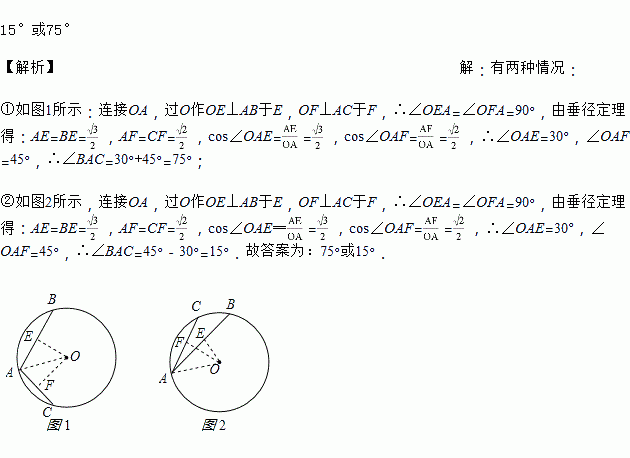 15°或75°
【解析】 解：有两种情况：
①如图1所示：连接OA，过O作OE⊥AB于E，OF⊥AC于F，∴∠OEA=∠OFA=90°，由垂径定理
得：AE=BE=√3/2，AF=CF=√2/2，cos∠OAE=AE/OA=√3/2，cos∠OAF=AF/OA=√2/2，∴∠OAE=30°，∠OAF
=45°，∴∠BAC=30°+45°=75°；
②如图2所示，连接OA，过O作OE⊥AB于E，OF⊥AC于F，∴∠OEA=∠OFA=90°，由垂径定理
得：AE=BE=√3/2，AF=CF=√2/2，cos∠OAE═AE/OA=√3/2，cos∠OAF=AF/OA=√2/2，∴∠OAE=30°，∠
OAF=45°，∴∠BAC=45°﹣30°=15°．故答案为：75°或15°．
B
E
O
A
F
C
图1
C
B
F
E
O
A
图2